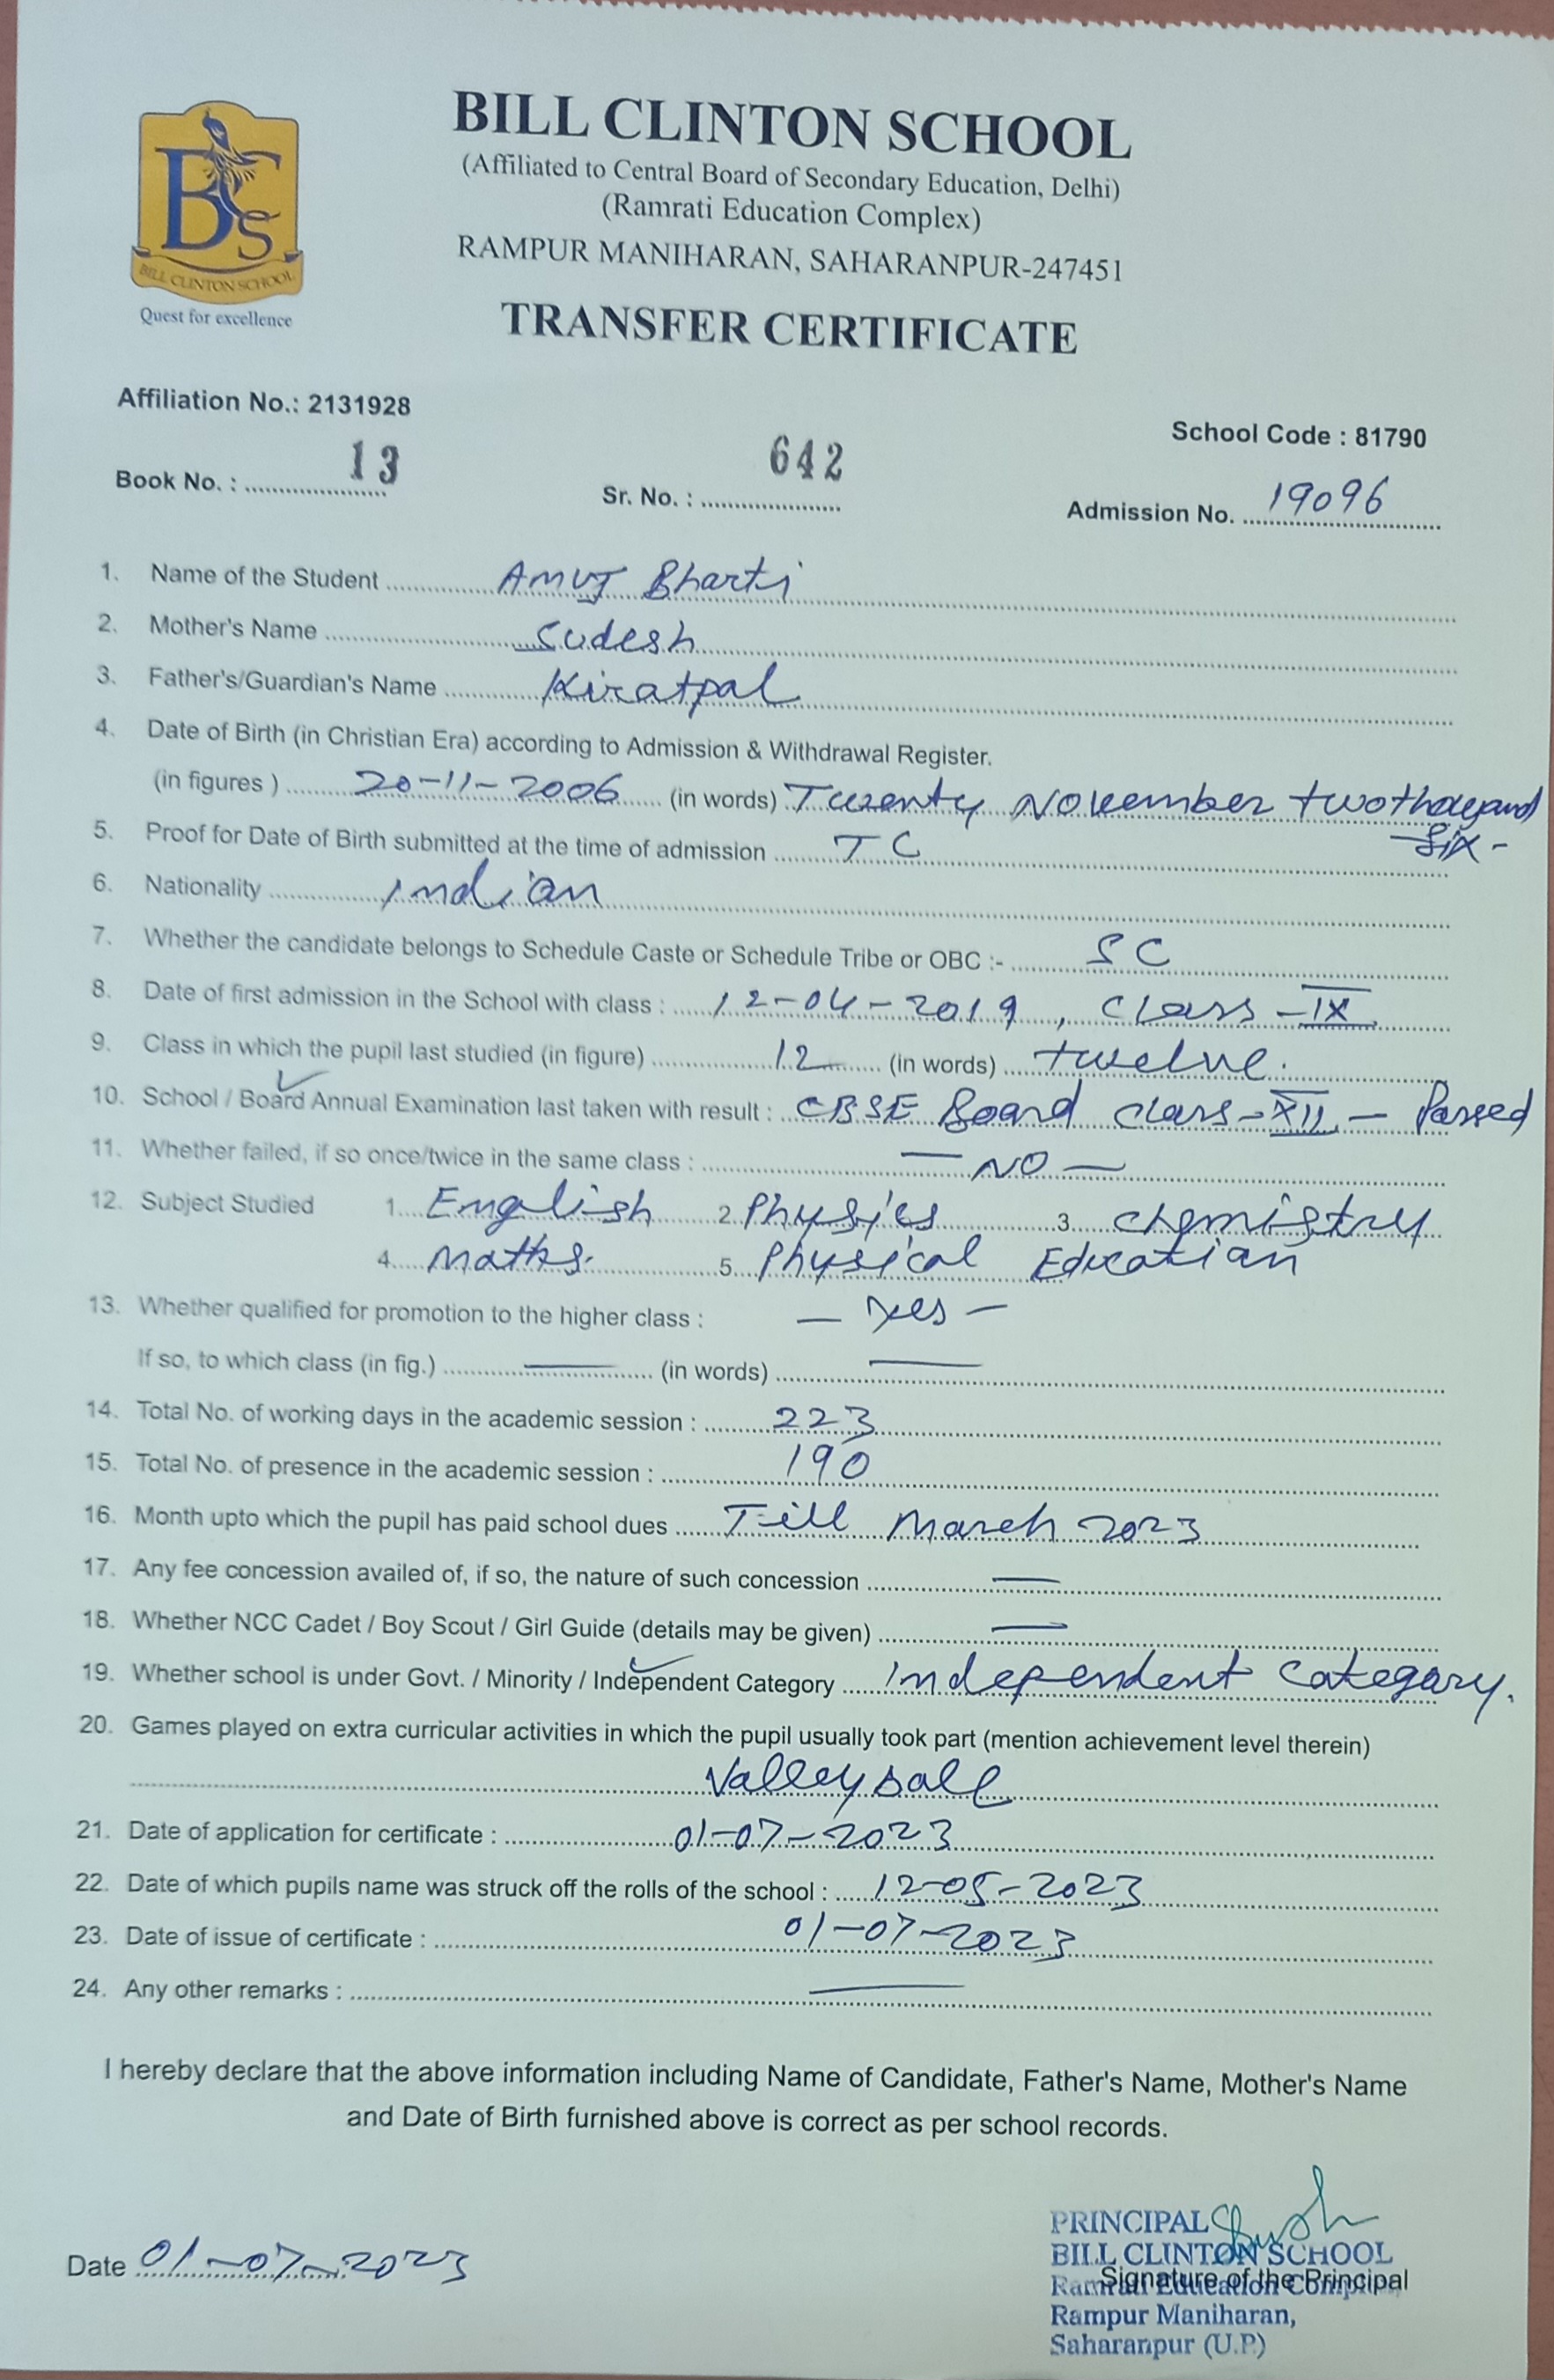 BILL CLINTON SCHOOL
(Affiliated to Central Board of Secondary Education, Delhi)
(Ramrati Education Complex)
RAMPUR MANIHARAN, SAHARANPUR-247451
BCS
BILL CLINTON SCHOOL
Quest for excellence
TRANSFER CERTIFICATE
Affiliation No.: 2131928
School Code : 81790
Book No. : 13 Sr. No. : 642 Admission No. 19096
1. Name of the Student Amuj Bharti
2. Mother's Name Sudesh
3. Father's/Guardian's Name Kiratpal
4. Date of Birth (in Christian Era) according to Admission & Withdrawal Register.
(in figures ) 20-11-2006 (in words) Twenty November twothousand
six-
5. Proof for Date of Birth submitted at the time of admission TC
6. Nationality Indian
7. Whether the candidate belongs to Schedule Caste or Schedule Tribe or OBC :- SC
8. Date of first admission in the School with class : 12-04-2019, class-IX
9. Class in which the pupil last studied (in figure) 12 (in words) twelve.
10. School / Board Annual Examination last taken with result : CBSE Board class-XII - Passed
11. Whether failed, if so once/twice in the same class : — NO —
12. Subject Studied 1. English 2. Physics 3. chemistry
4. Maths. 5. Physical Education
13. Whether qualified for promotion to the higher class : — Yes —
If so, to which class (in fig.) — (in words) —
14. Total No. of working days in the academic session : 223
15. Total No. of presence in the academic session : 190
16. Month upto which the pupil has paid school dues Till March 2023
17. Any fee concession availed of, if so, the nature of such concession —
18. Whether NCC Cadet / Boy Scout / Girl Guide (details may be given) —
19. Whether school is under Govt. / Minority / Independent Category Independent category.
20. Games played on extra curricular activities in which the pupil usually took part (mention achievement level therein)
Valleyball
21. Date of application for certificate : 01-07-2023
22. Date of which pupils name was struck off the rolls of the school : 12-05-2023
23. Date of issue of certificate : 01-07-2023
24. Any other remarks : —
I hereby declare that the above information including Name of Candidate, Father's Name, Mother's Name
and Date of Birth furnished above is correct as per school records.
Date 01-07-2023
PRINCIPAL
BILL CLINTON SCHOOL
Signature of the Principal
Ramrati Education
Rampur Maniharan,
Saharanpur (U.P.)